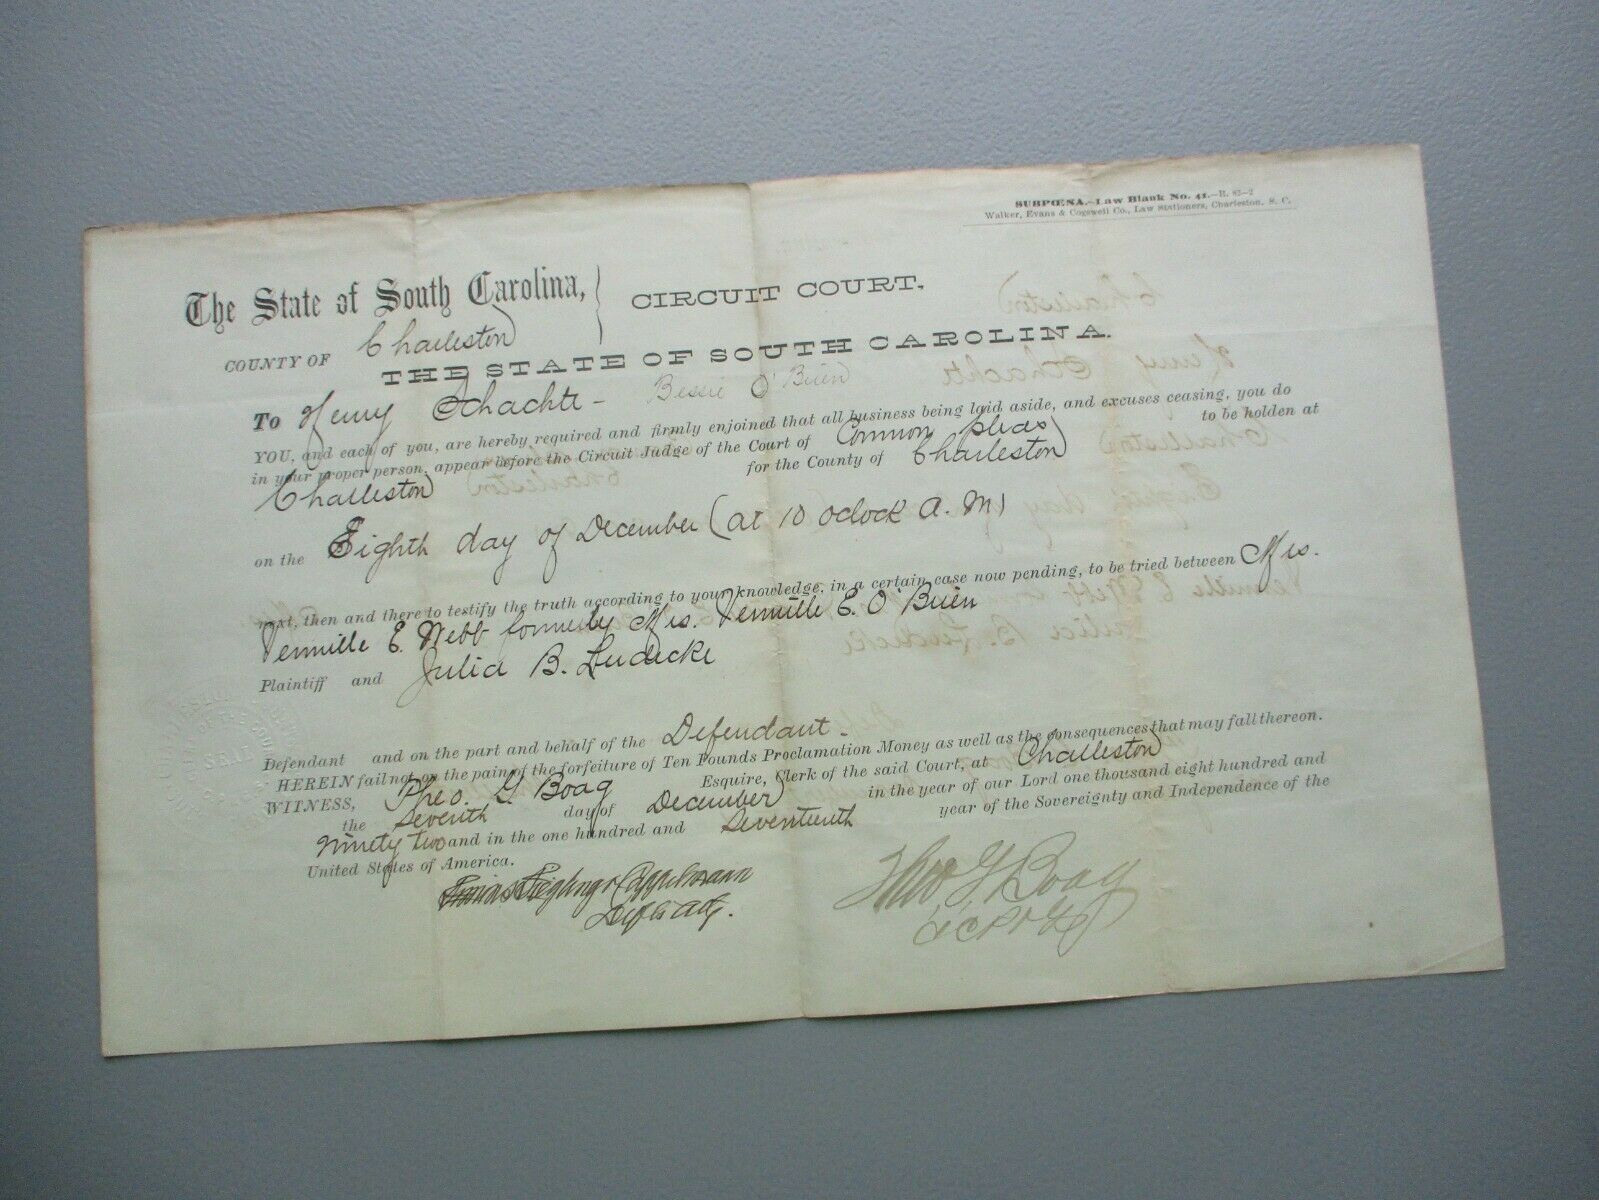 SUBPŒNA.—Law Blank No. 41.—R. 87—2
Walker, Evans & Cogswell Co., Law Stationers, Charleston, S. C.
The State of South Carolina, CIRCUIT COURT,
COUNTY OF Charleston
THE STATE OF SOUTH CAROLINA.
To Henry Schachte - Bessie O'Brien
YOU, and each of you, are hereby required and firmly enjoined that all business being laid aside, and excuses ceasing, you do
in your proper person, appear before the Circuit Judge of the Court of Common pleas to be holden at
Charleston for the County of Charleston
on the Eighth day of December (at 10 oclock A.M)
next, then and there to testify the truth according to your knowledge, in a certain case now pending, to be tried between Mrs.
Vennille E. Webb formerly Mrs. Vennille E. O'Brien
Plaintiff and Julia B. Ludecke
Defendant and on the part and behalf of the Defendant -
HEREIN fail not, on the pain of the forfeiture of Ten Pounds Proclamation Money as well as the consequences that may fall thereon.
WITNESS, Theo. G. Boag Esquire, Clerk of the said Court, at Charleston
the seventh day of December in the year of our Lord one thousand eight hundred and
ninety two and in the one hundred and seventeenth year of the Sovereignty and Independence of the
United States of America.
Cappelmann
Defts Atty.
Theo G Boag